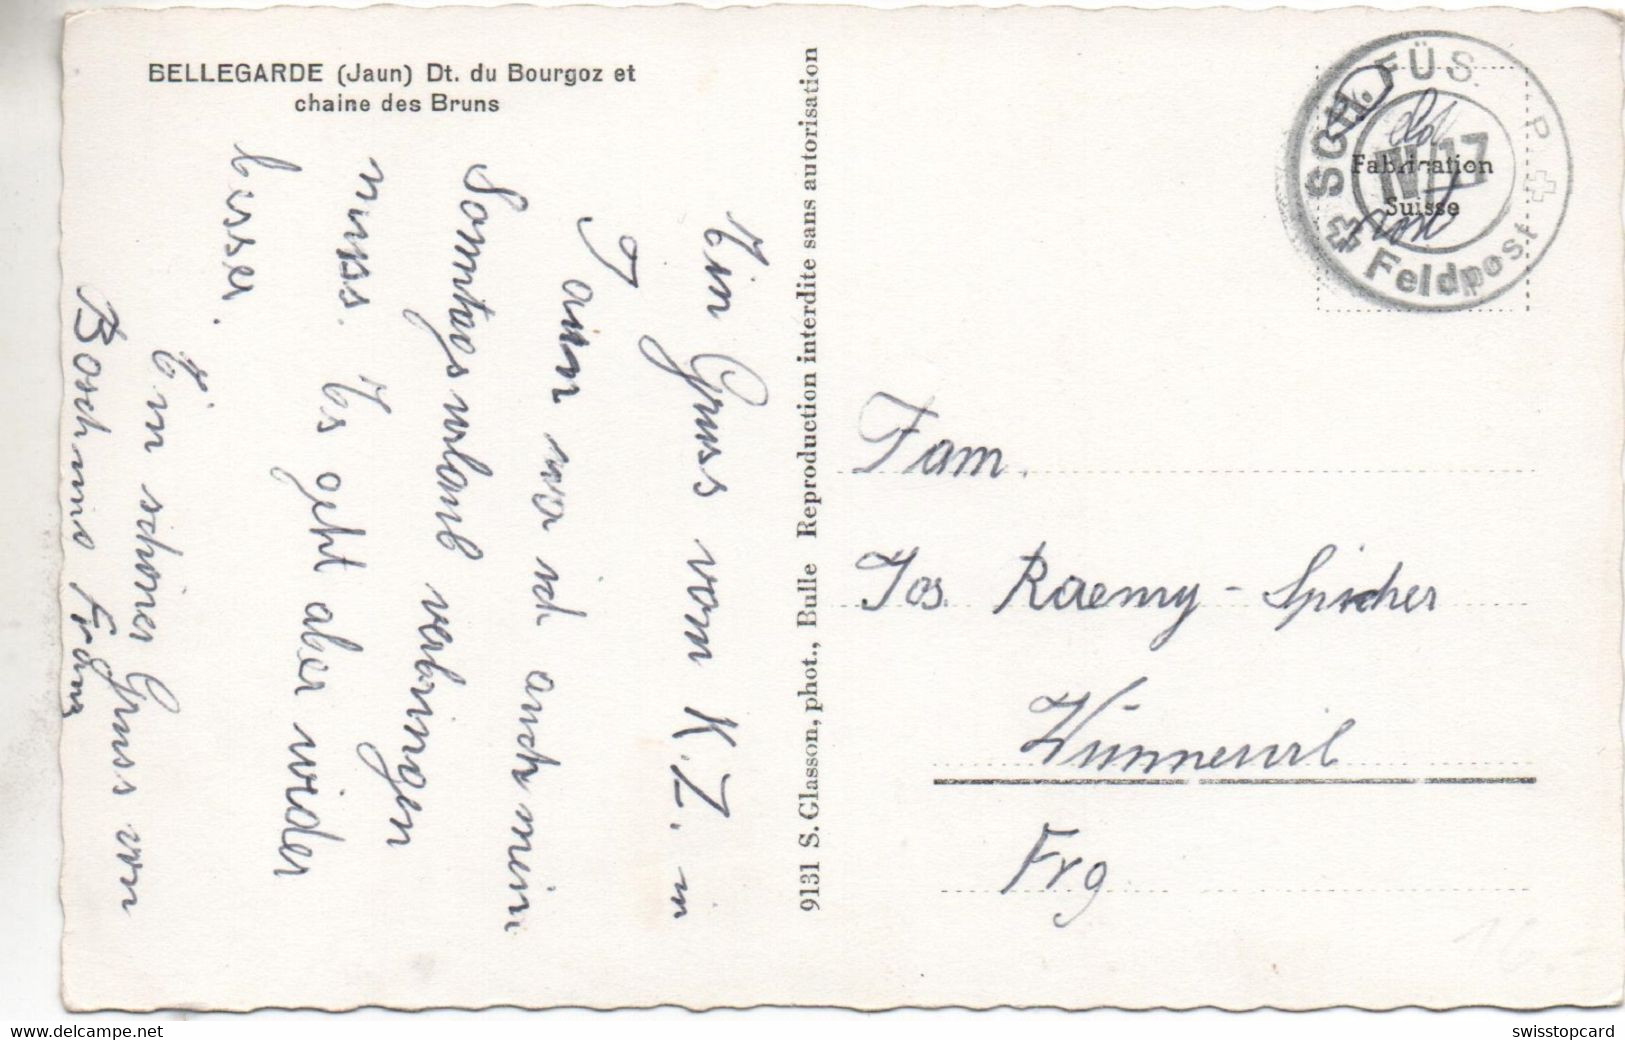 BELLEGARDE (Jaun) Dt. du Bourgoz et
chaine des Bruns
Ein Gruss vom K.Z. in
Jaun wo ich auch mein
Sonntagsurlaub verbringen
muss. Es geht aber wider
besser.
Ein schöner Gruss von
Franz
9131 S. Glasson, phot., Bulle Reproduction interdite sans autorisation
SCH. FÜS. P.
IV/17
Feldpost
Fabrication
Suisse
Fam.
Jos. Raemy-Spicher
Wünnewil
Frg
16.-
www.delcampe.net
swisstopcard